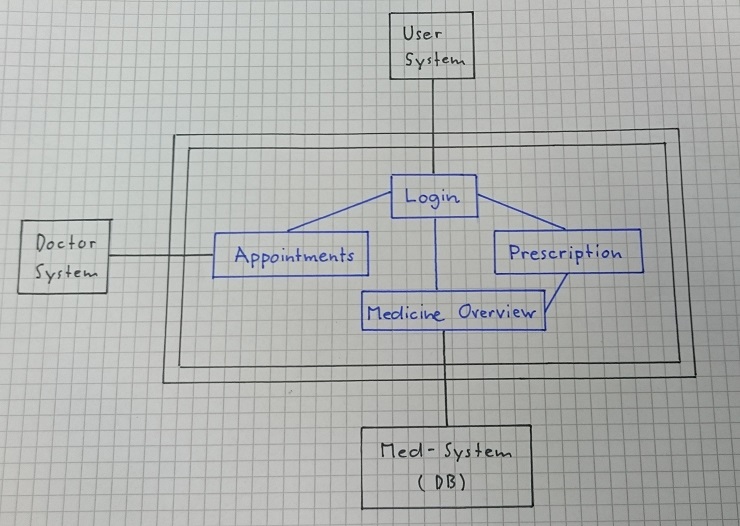 User
System
Login
Doctor
System
Appointments
Prescription
Medicine Overview
Med-System
(DB)